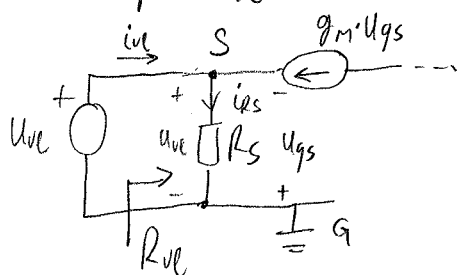 i_ul S g_m·u_gs
+ + i_RS -
u_ul u_ul R_S u_gs
- +
R_ul G